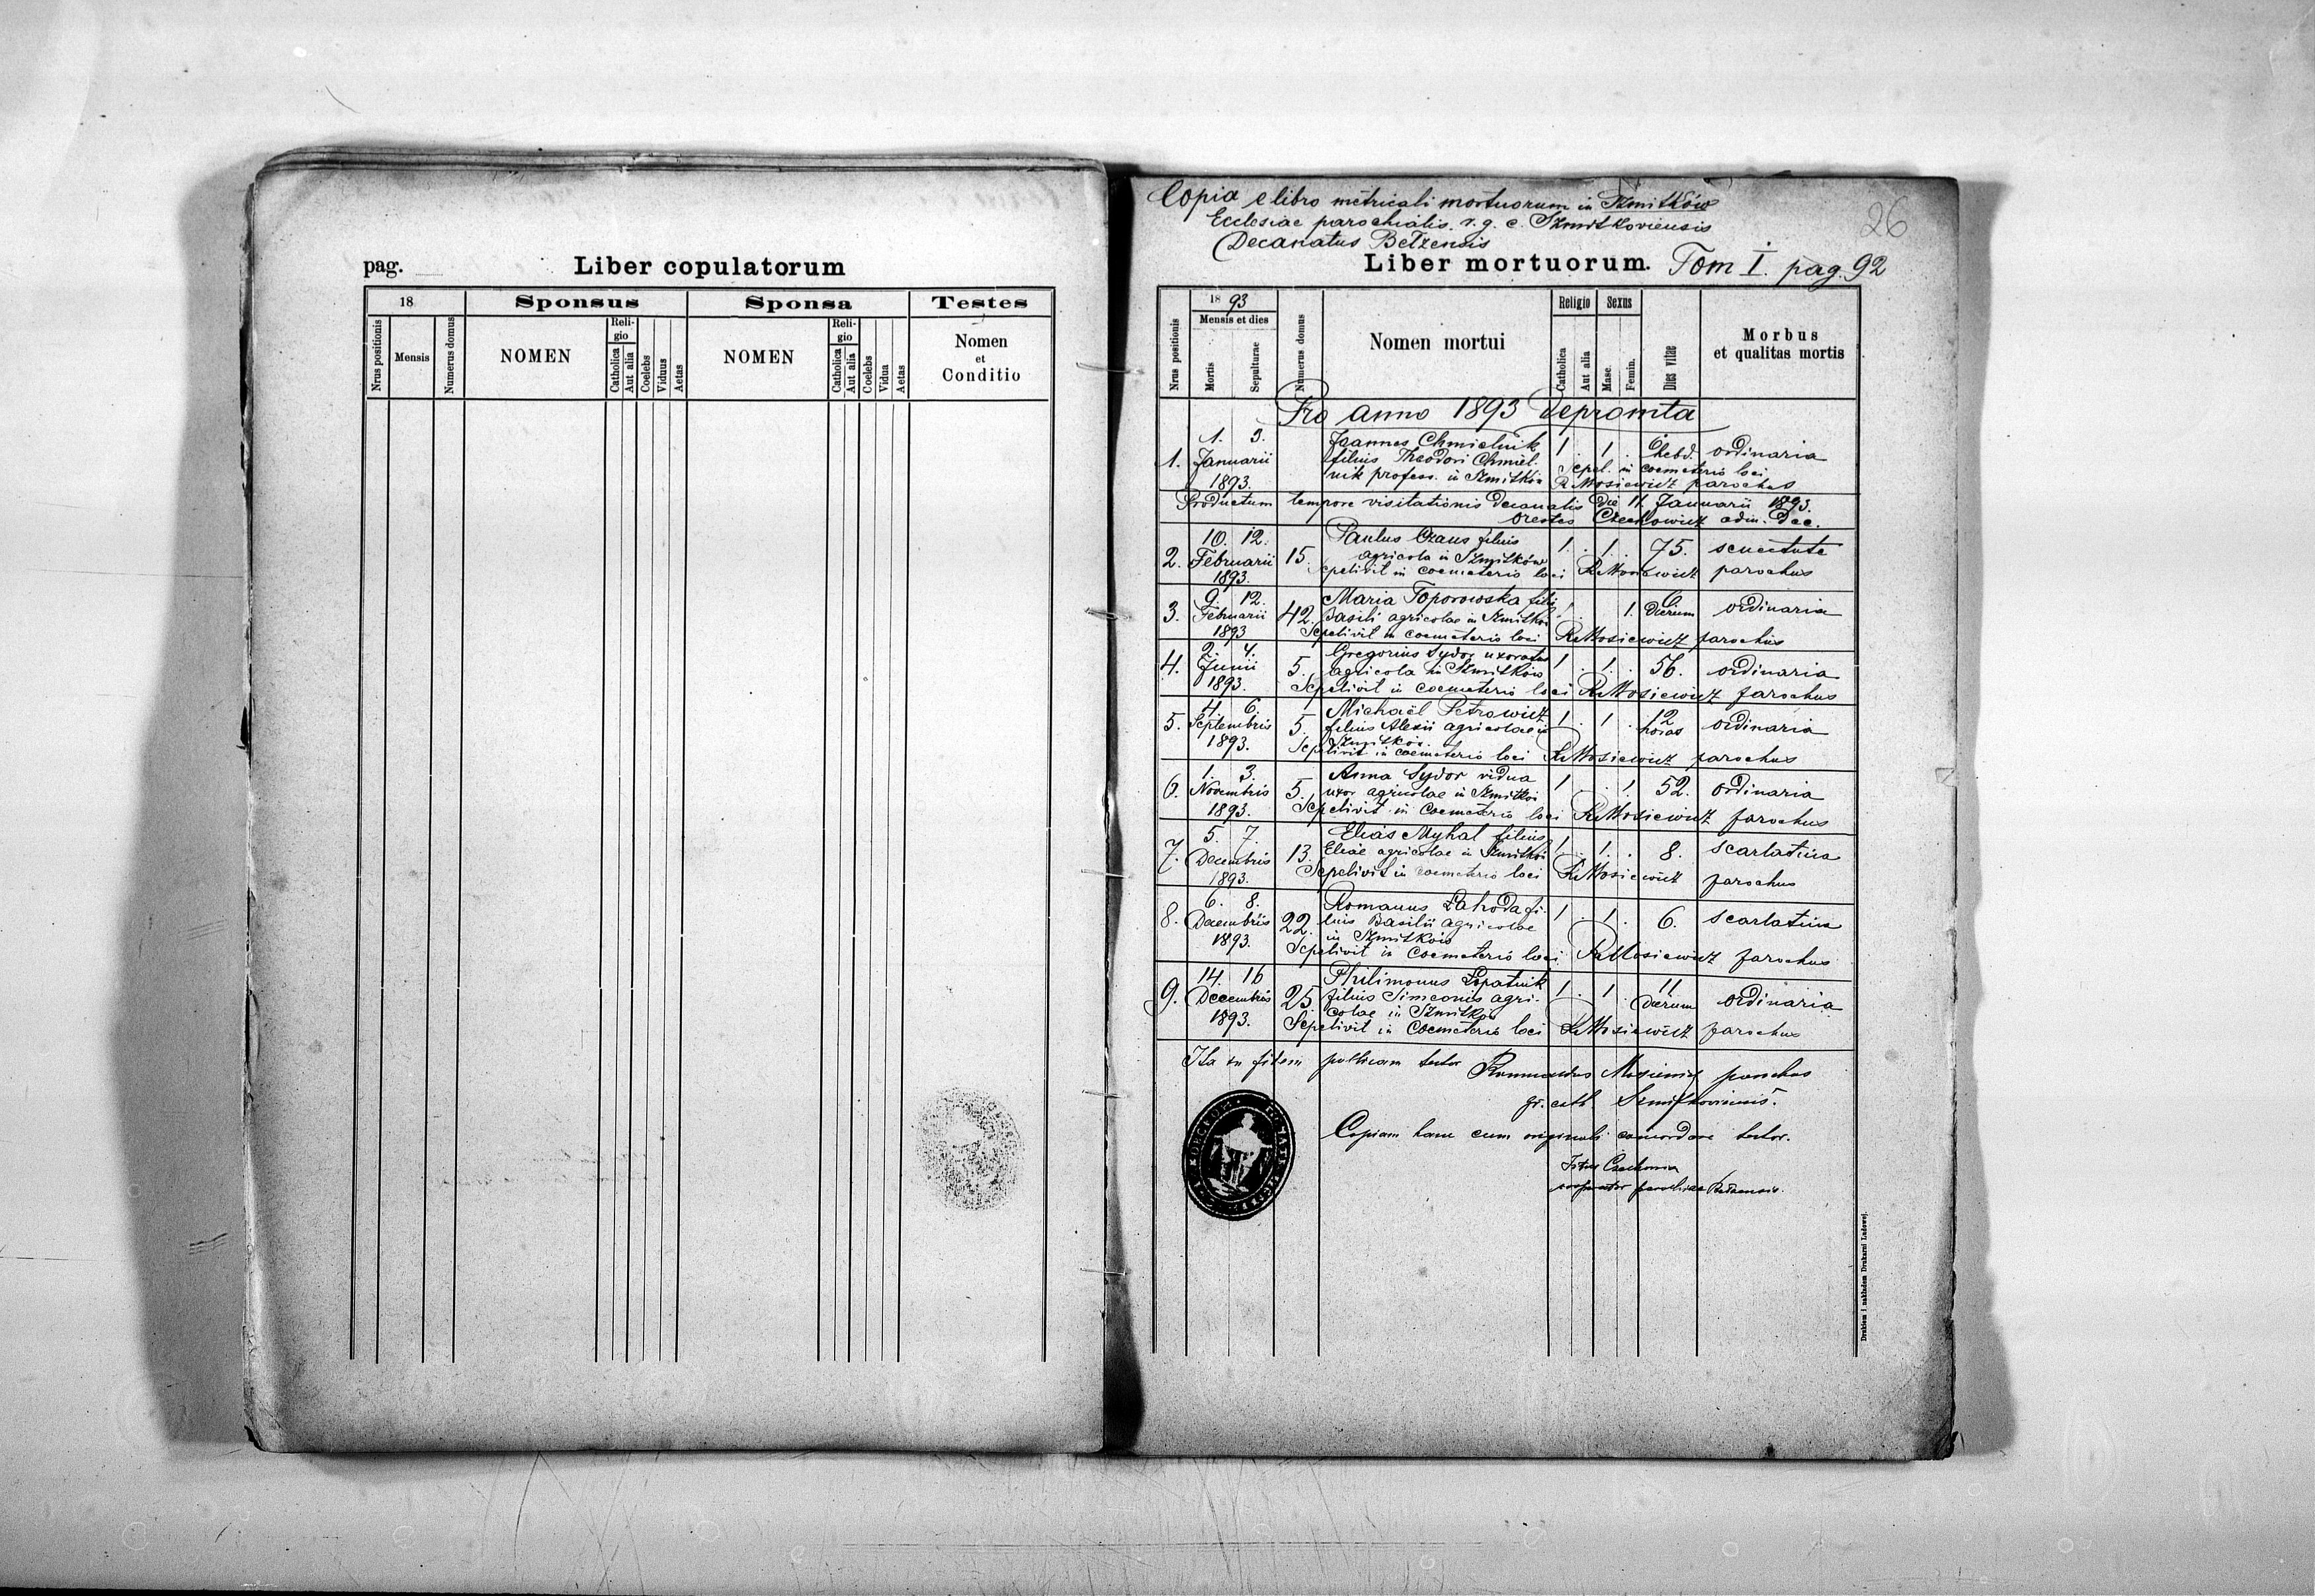 pag.
Liber copulatorum
18
Sponsus
Sponsa
Testes
Nrus positionis
Mensis
Numerus domus
NOMEN
Religio
Catholica
Aut alia
Coelebs
Viduus
Aetas
NOMEN
Religio
Catholica
Aut alia
Coelebs
Vidua
Aetas
Nomen
et
Conditio
Copia e libro metricali mortuorum in Szmitków
Ecclesiae parochialis r. g. c. Szmitkoviensis
Decanatus Bełzensis
26
Liber mortuorum. Tom I. pag. 92
Nrus positionis
1893
Mensis et dies
Mortis
Sepulturae
Numerus domus
Nomen mortui
Religio
Catholica
Aut alia
Sexus
Masc.
Femin.
Dies vitae
Morbus
et qualitas mortis
Pro anno 1893 depromta
1. 3. Joannes Chmielnik 1. 1. hebd. ordinaria
1. Januarii filius Theodori Chmiel- Sepel. in coemeterio loci
1893. nik profess. in Szmitków R Mosiewicz parochus
Productum tempore visitationis decanalis die 11. Januarii 1893.
Orestes Czechowicz adm. dec.
10. 12. Paulus filius 1. 1. 75. senectute
2. Februarii 15. agricola in Szmitków
1893. Sepelivit in coemeterio loci R Mosiewicz parochus
9. 12. Maria Toporowska filia 1. 6 dierum ordinaria
3. Februarii 42. Basili agricolae in Szmitków
1893 Sepelivit in coemeterio loci R Mosiewicz parochus
2. 4. Gregorius Sydor uxoratus 1. 1. 56. ordinaria
4. Junii 5. agricola in Szmitków
1893. Sepelivit in coemeterio loci R Mosiewicz parochus
4. 6. Michaël Petrowicz 1. 1. 12 horas ordinaria
5. Septembris 5. filius Alexii agricolae in
1893. Szmitków.
Sepelivit in coemeterio loci R Mosiewicz parochus
1. 3. Anna Sydor vidua 1. 1 52. ordinaria
6. Novembris 5. uxor agricolae in Szmitków
1893. Sepelivit in coemeterio loci R Mosiewicz parochus
5. 7. Elias Myhal filius 1. 1. 8. scarlatina
7. Decembris 13. Eliae agricolae in Szmitków
1893. Sepelivit in coemeterio loci R Mosiewicz parochus
6. 8. Romanus Zahoda fi- 1. 1. 6. scarlatina
8. Decembris 22. lius Basilii agricolae
1893. in Szmitków
Sepelivit in coemeterio loci R Mosiewicz parochus
14. 16 Philimonus Łopatnik 1. 1 11 dierum ordinaria
9. Decembris 25. filius Simeonis agri-
1893. colae in Szmitków
Sepelivit in coemeterio loci R Mosiewicz parochus
Ita in fidem publicam testor Romualdus Mosiewicz parochus
gr. cath. Szmitkoviensis.
Copiam hanc cum originali concordare testor.
cooperator parochiae Bełzensis.
Drukiem i nakładem Drukarni Ludowej.